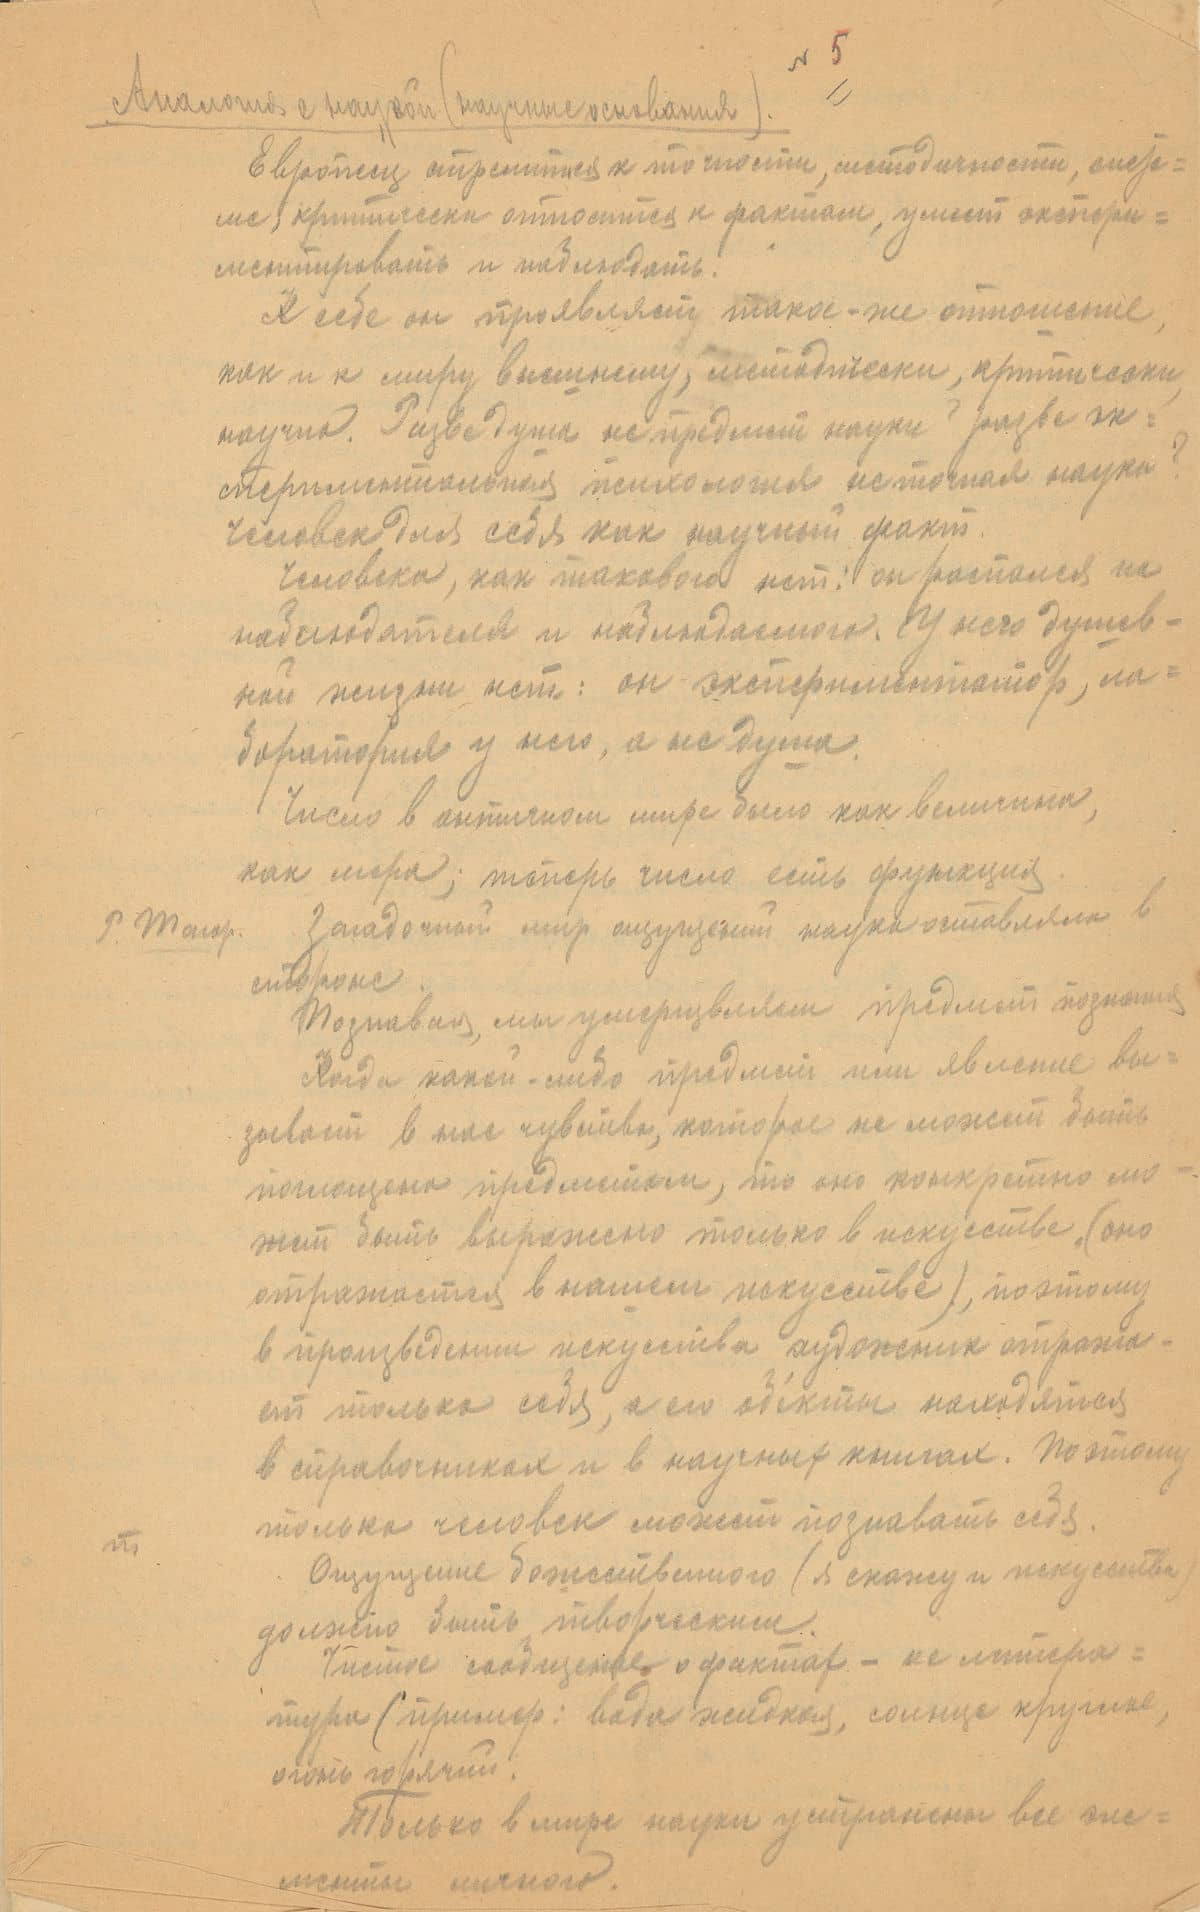 № 5
Аналогия с наукой (научные основания).
Европеец стремится к точности, методичности, систе=
ме, критически относится к фактам, умеет экспери=
ментировать и наблюдать.
К себе он проявляет такое-же отношение,
как и к миру внешнему, методически, критически,
научно. Разве душа не предмет науки? разве эк=
спериментальная психология не точная наука?
Человек для себя как научный факт.
Человека, как такового нет: он распался на
наблюдателя и наблюдаемого. У него душев-
ной жизни нет: он экспериментатор, ла=
боратория у него, а не душа.
Число в античном мире было как величина,
как мера; теперь число есть функция.
Р. Тагор. Загадочный мир ощущений наука оставляла в
стороне.
Познавая, мы умерщвляем предмет познания
Когда какой-либо предмет или явление вы=
зывает в нас чувство, которое не может быть
поглощено предметом, то оно конкретно мо-
жет быть выражено только в искусстве (оно
отражается в нашем искусстве), поэтому
в произведении искусства художник отража-
ет только себя, а его объекты находятся
в справочниках и в научных книгах. Поэтому
только человек может познавать себя.
т Ощущение божественного (я скажу и искусства)
должно быть творческим.
Чистое сообщение о фактах - не литера=
тура (пример: вода жидкая, солнце круглое,
огонь горячий.
Только в мире науки устранены все эле=
менты личного.